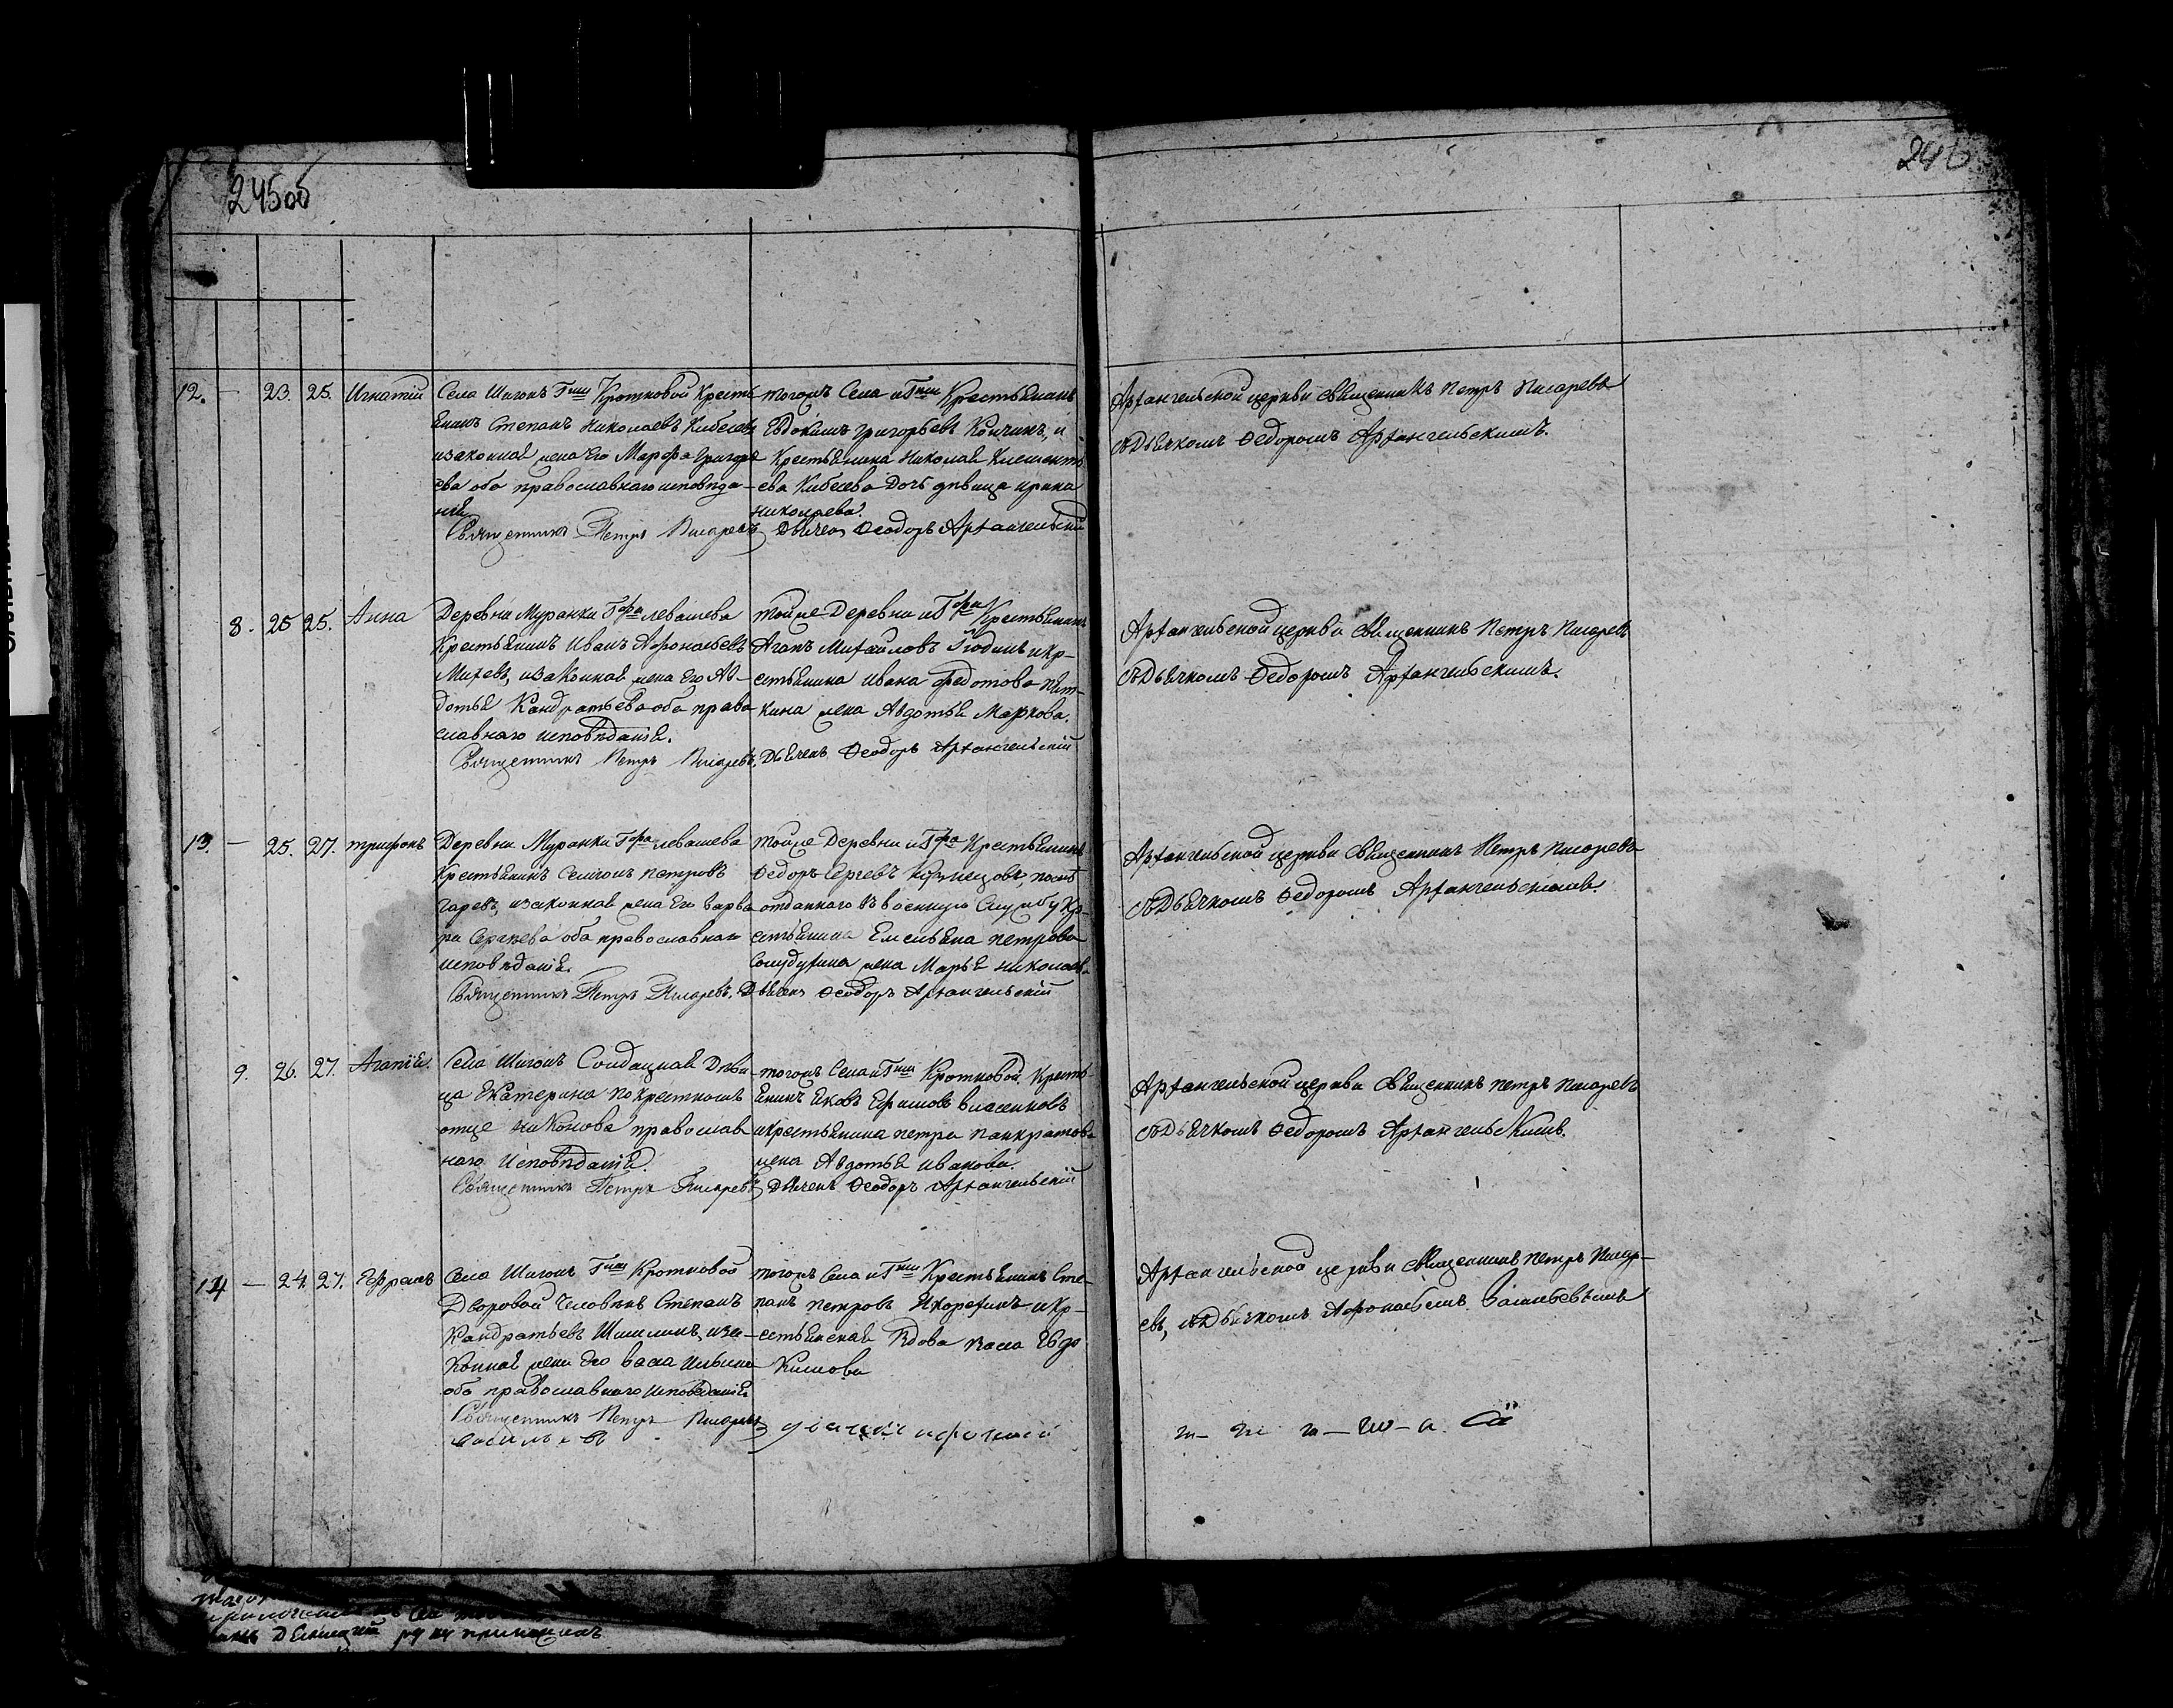 245об
246
12. — 23. 25. Игнатій
Села Шигонъ Гжи Кротковой Кресть
янинъ Степанъ Николаевъ Кибесевъ
изаконная жена Его Марфа Григорь
ева оба православнаго исповѣда-
нія
Священникъ Петръ Писаревъ
тогожъ Села иГжи Крестьянинъ
Евдокимъ Григорьевъ Кончинъ, и
Крестьянина Николая Клементь
ева Кибесева Дочь дѣвица Ирина
Николаева.
Дьячокъ Ѳеодоръ Архангельскій
Архангельской церкви священникъ Петръ Писаревъ
съДьячкомъ Ѳедоромъ Архангельскимъ.
8. 25 25. Анна
Деревни Муранки Гфа Левашева
Крестьянинъ Иванъ Афонасьевъ
Михевъ, изаконная жена Его Ав-
дотья Кандратьева оба право
славнаго исповѣданія.
Священникъ Петръ Писаревъ.
тойже Деревни иГфа Крестьянинъ
Агапъ Михайловъ икр-
стьянина Ивана Федотова
кина жена Авдотья Маркова.
Дьячекъ Ѳеодоръ Архангельскій
Архангельской церкви священникъ Петръ Писаревъ
съДьячкомъ Ѳедоромъ Архангельскимъ.
13. — 25. 27. Трифонъ
Деревни Муранки Гфа Левашева
Крестьянинъ Семионъ Петровъ
Гаревъ, изаконная жена Его Варва
ра Сергѣева оба православнаго
исповѣданія.
Священникъ Петръ Писаревъ.
тойже Деревни иГфа Крестьянинъ
Ѳедоръ Сергевъ Кузнецовъ,
отданнаго въ военную Службу Кр-
стьянина Емельяна Петрова
жена Марья Николаева
Дьячекъ Ѳеодоръ Архангельскій
Архангельской церкви священникъ Петръ Писаревъ
съДьячкомъ Ѳедоромъ Архангельскимъ
9. 26. 27. Агапія.
Села Шигонъ Солдацкая Дѣви
ца Екатерина по крестномъ
отце Никонова православ
наго Исповѣданія.
Священникъ Петръ Писаревъ
тогожъ Села иГжи Кротковой Кресть-
янинъ Яковъ Ефимовъ Власенковъ
икрестьянина Петра Панкратова
жена Авдотья Иванова.
Дьячекъ Ѳеодоръ Архангельскій
Архангельской церкви священникъ Петръ Писаревъ
съДьячкомъ Ѳедоромъ Архангельскимъ.
14 — 24. 27. Ефремъ
Села Шигонъ Гжи Кротковой
Дворовой Человѣкъ Степанъ
Кандратьевъ Шишлинъ, иза-
конная жена его Васа Ильина
оба православнаго Исповѣданія
Священникъ Петръ Писаревъ
тогожъ Села иГжи Крестьянинъ Сте-
панъ Петровъ икр-
естьянская Вдова Васа Евдо
Кимова
Архангельской церкви священникъ Петръ Писар-
евъ, съДьячкомъ Афонасьемъ